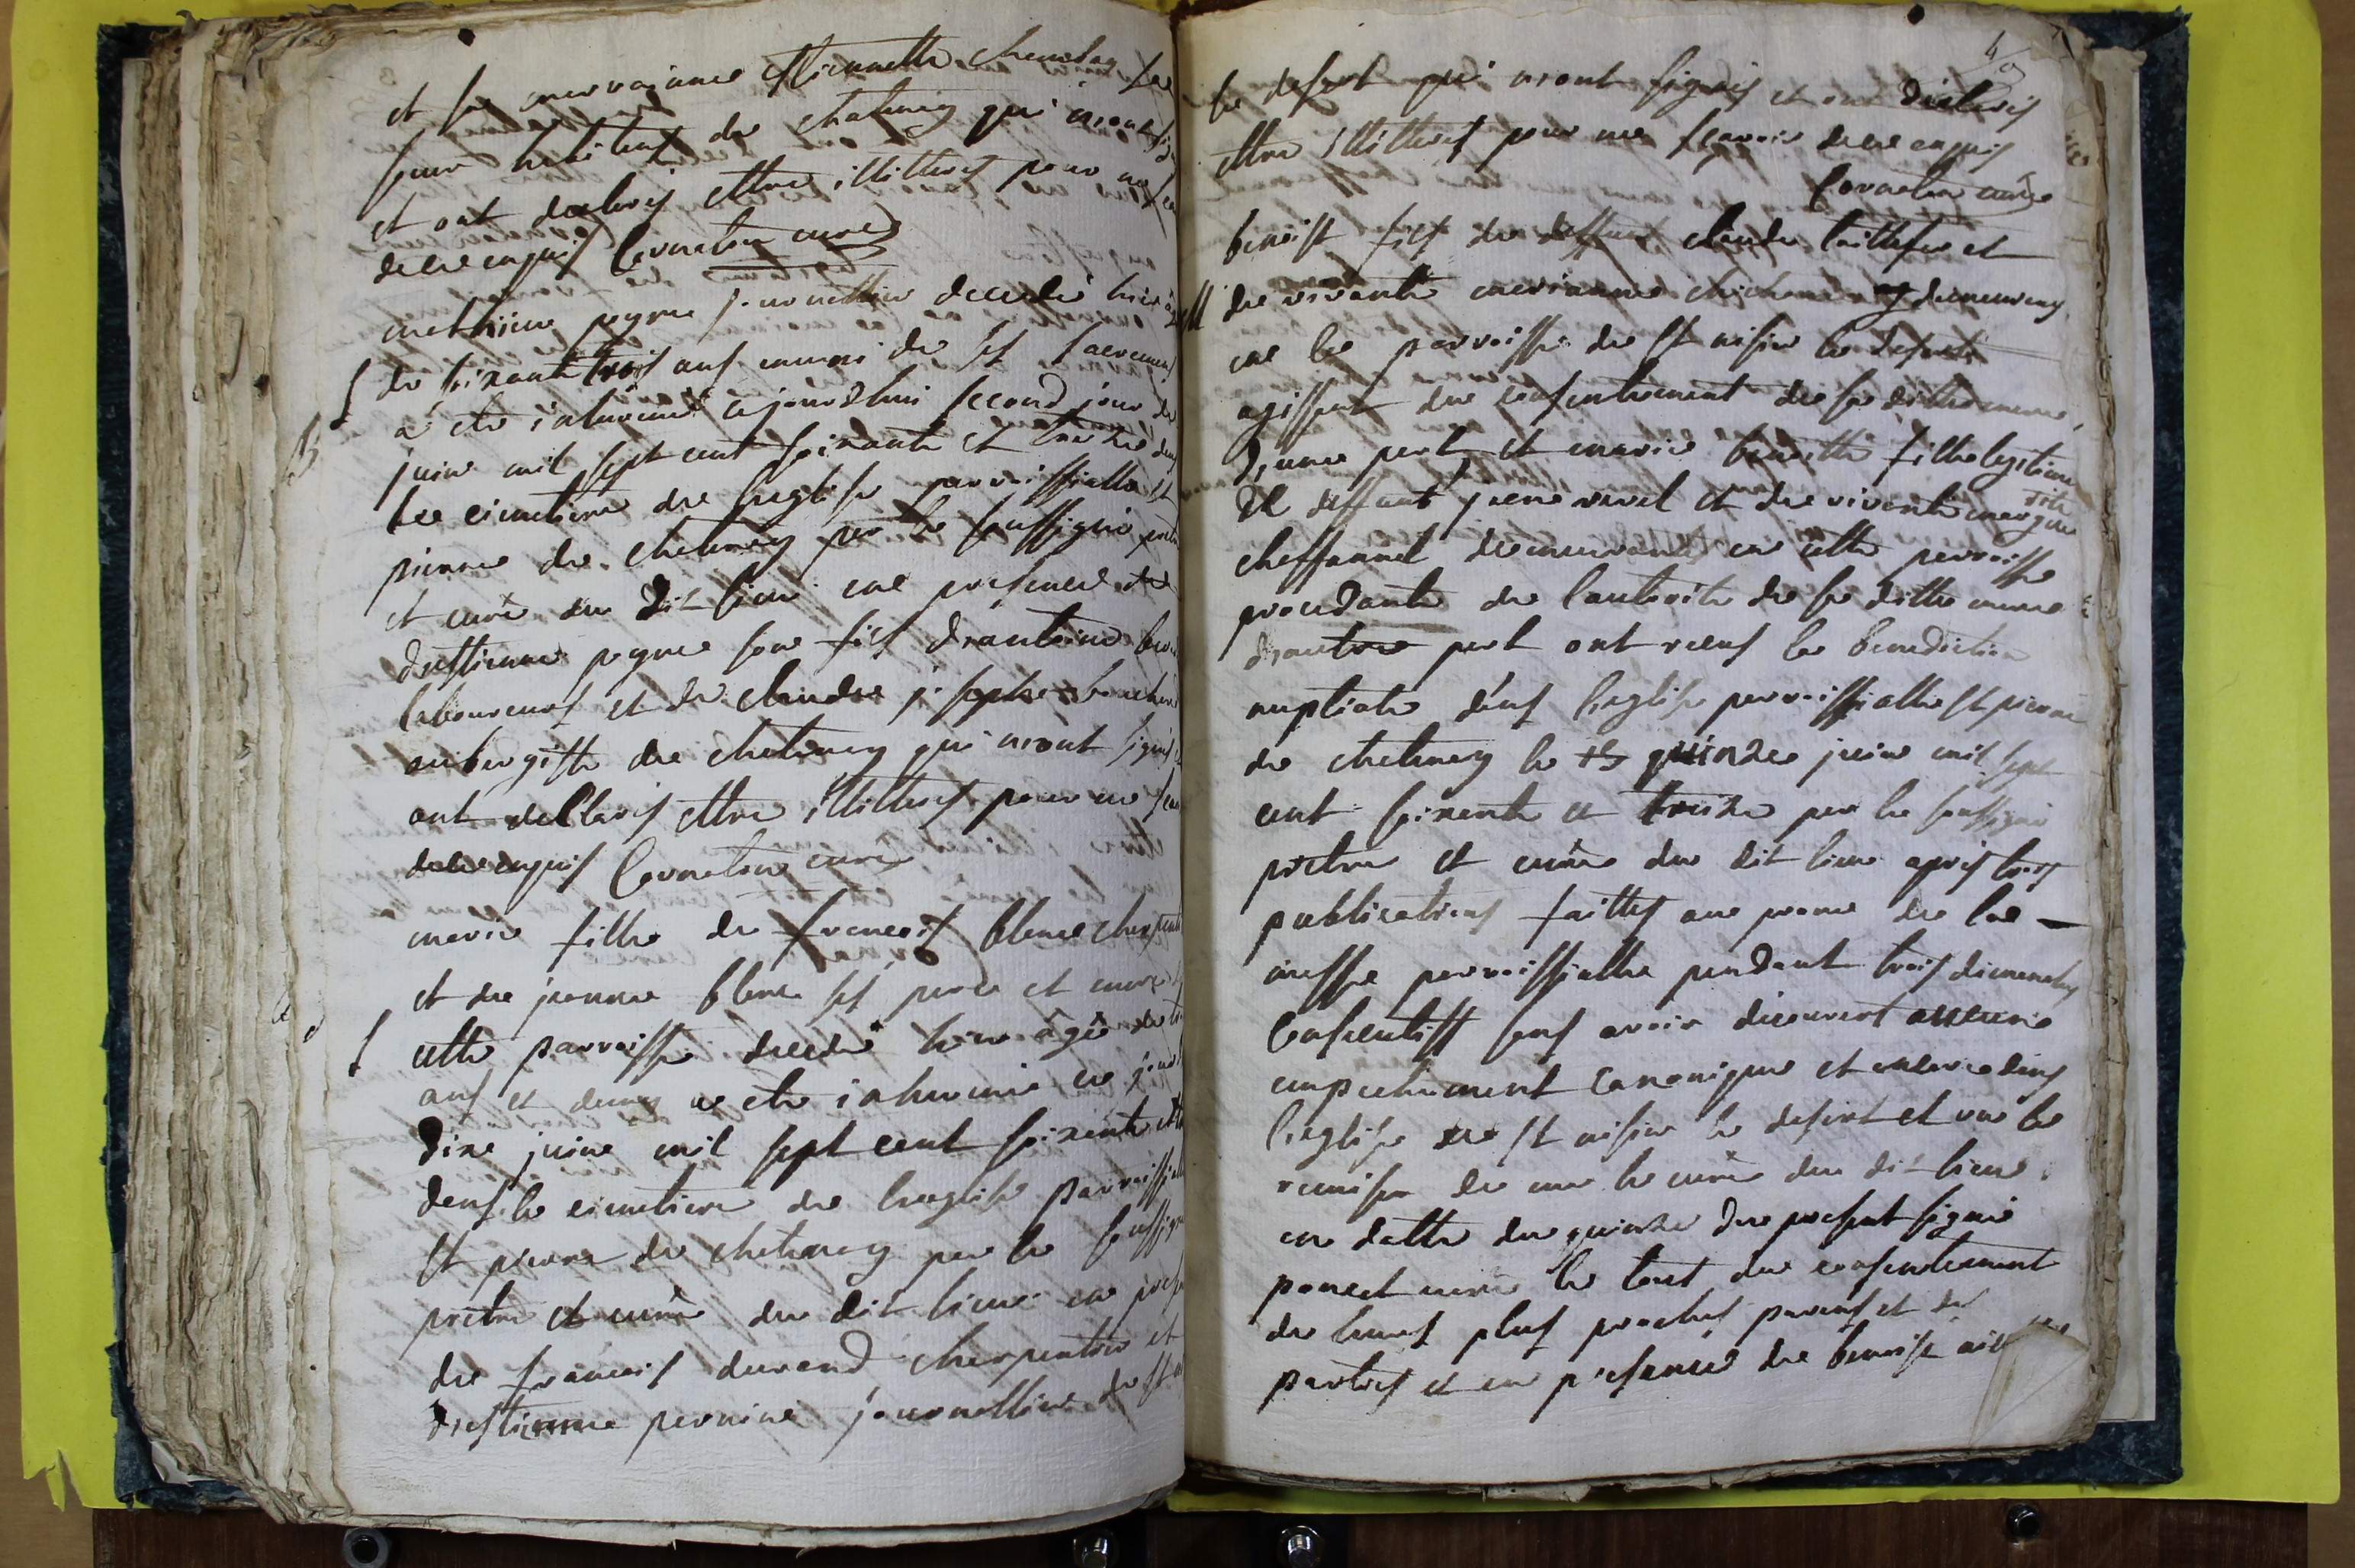 et sa marraine Estiennette
soeur habitans de chatenay qui n'ont sig
et ont declarés ettre illitterés pour ne sca
de ce enquis Cornaton curé
mathieu pegne journallier decedé hier a
de soixante trois ans muni de st sacremens
a ete inhumé ajourdhui second jour de
juin mil sept cent soixante et treize dans
le cimetiere de l'eglise parroissialle st
pierre de chatenay par le soussigné pretre
et curé du dit lieu en presence de
d'estienne pegne son fils d'antoine
laboureurs et de claude joseph
aubergiste de chatenay qui n'ont signés
ont declarés ettre illitterés pour ne sca
de ce enquis Cornaton curé
marie fille de francois blanc charpent
et de jeanne blanc ses pere et mere
cette parroisse decedé hier âgé de
ans et demy a ete inhumé ce jourd
dixe juin mil sept cent soixante et
dans le cimetiere de l'eglise parroissialle
st pierre de chatenay par le soussigné
pretre et curé du dit lieu en prese
de francois durand charpentier et
d'estienne pernine journallier de st
4
le desert qui n'ont signés et ont declarés
ettre illitterés pour ne scavoir de ce enquis
Cornaton curé
benoist fils de deffunt claude et
de vivante marianne demeurans
en la parroisse de st nisier le desert
agissant du consentement de sa ditte mere
d'une part et marie benoitte fille legitime
de deffunt pierre ravel et de vivante marguerite
demeurante en cette parroisse
procedante de l'autorite de sa ditte mere
d'autre part ont receus la benediction
nuptiale dans l'eglise parroissialle st pierre
de chatenay le 15 quinze juin mil sept
cent soixante et treize par le soussigné
pretre et curé du dit lieu apris trois
publications faittes au prone de la
messe parroissialle pendant trois dimanches
consecutifs sans avoir decouvert aucun
empechement canonique et
l'eglise de st nisier le desert et vue la
remise de mr le curé du dit lieu
en datte du quinze du present signé
poncet curé le tout du consentement
de leurs plus proches parens et des
parties et en presence de benoist